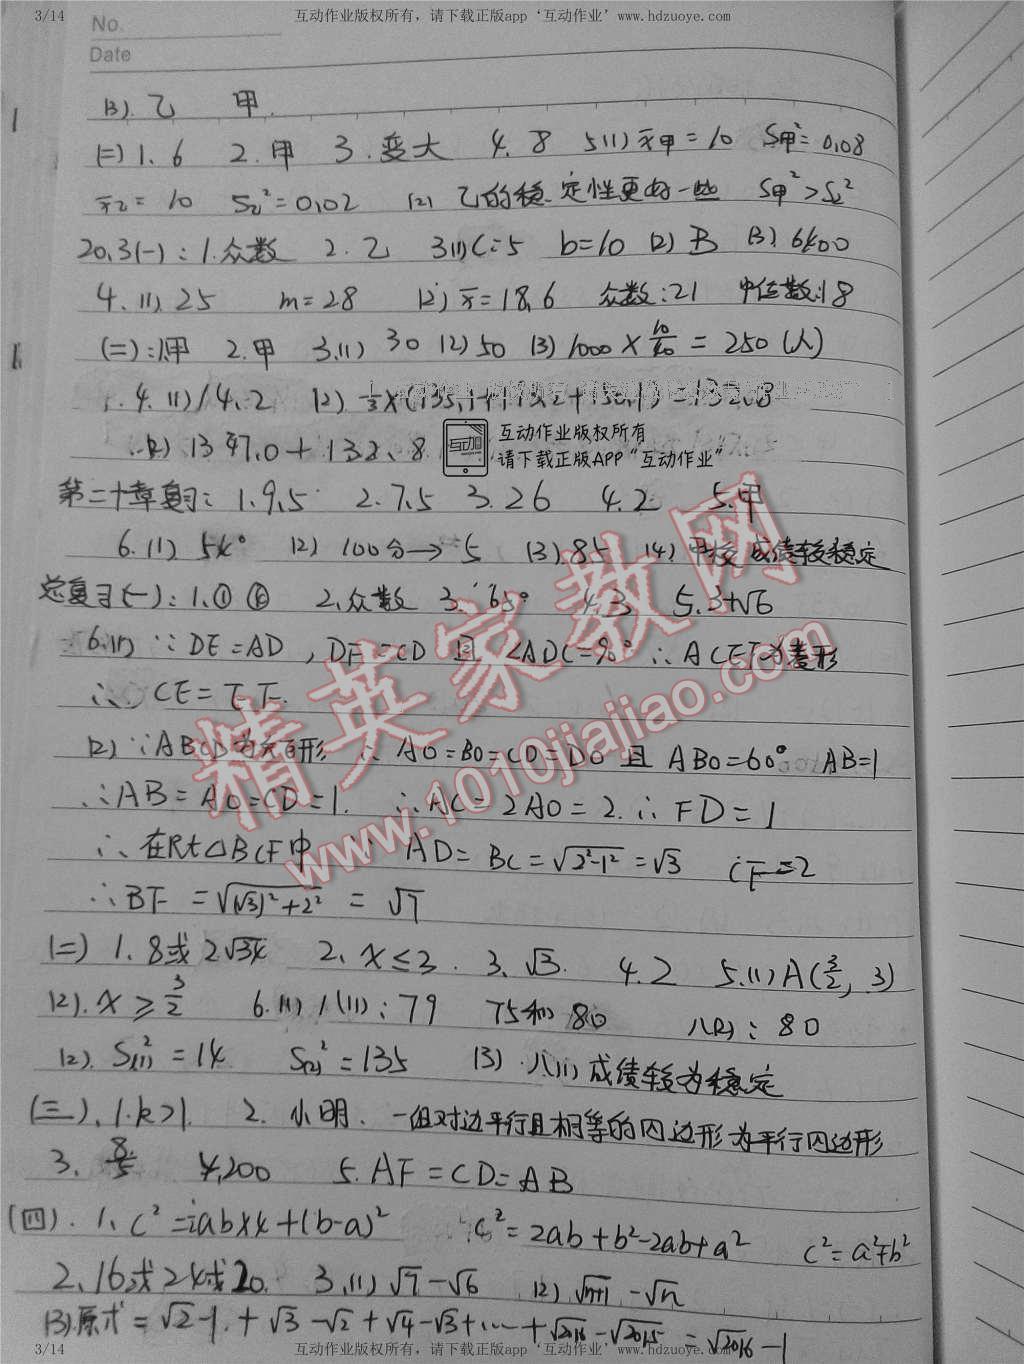 3/14 互动作业版权所有，请下载正版app‘互动作业’www.hdzuoye.com
No.
Date
(3). 乙 甲.
(二) 1. 6 2. 甲 3. 变大 4. 8 5.(1) x̄甲 = 10 S甲² = 0.08
x̄乙 = 10 S乙² = 0.02 (2) 乙的稳定性更好一些 S甲² > S乙²
20.3 (一): 1. 众数 2. 乙 3.(1) C=5 b=10 (2) B (3) 6400
4. (1) 25 m=28 (2) x̄=18.6 众数:21 中位数:18
(二): 1.甲 2. 甲 3.(1) 30 (2) 50 (3) 1000 × 10/40 = 250 (人)
4. (1) 14.2
互动作业版权所有
请下载正版APP“互动作业”
第二十章复习: 1. 9.5 2. 7.5 3. 26 4. 2 5. 甲
6. (1) 54° (2) 100分→5 (3) 85 (4) 甲校成绩较稳定
总复习(一): 1. 2. 众数 3. 65° 4. 3 5. 3+√6
6.(1) ∵ DE = AD, DF = CD 且 ∠ADC = 90° ∴ ACEF为菱形
∴ CE = EF.
(2) ∵ABCD为矩形 ∴ AO = BO = CO = DO 且 ABO = 60° AB=1
∴AB = AO = CD = 1. ∴AC = 2AO = 2. ∴ FD = 1
∴ 在Rt△BCF中 ∵ AD = BC = √(2²-1²) = √3 CF = 2
∴BF = √((√3)²+2²) = √7
(二) 1. 8或2√34 2. x ≤ 3. 3. √3. 4. 2 5. (1) A(3/2, 3)
(2). x ≥ 3/2 6.(1) 八(1): 79 75和80 八(2): 80
(2). S(1)² = 14 S(2)² = 135 (3). 八(1)成绩较为稳定
(三). 1. k>1. 2. 小明. 一组对边平行且相等的四边形为平行四边形
3. 8/5 4. 200 5. AF = CD = AB
(四). 1. c² = ½ab×4 + (b-a)² ∴c² = 2ab + b² - 2ab + a² c² = a² + b²
2. 16或24或20. 3. (1) √7 - √6 (2) √(n+1) - √n
(3) 原式 = √2 - 1 + √3 - √2 + √4 - √3 + ... + √2016 - √2015 = √2016 - 1
精英家教网
www.1010jiajiao.com
3/14 互动作业版权所有，请下载正版app‘互动作业’www.hdzuoye.com